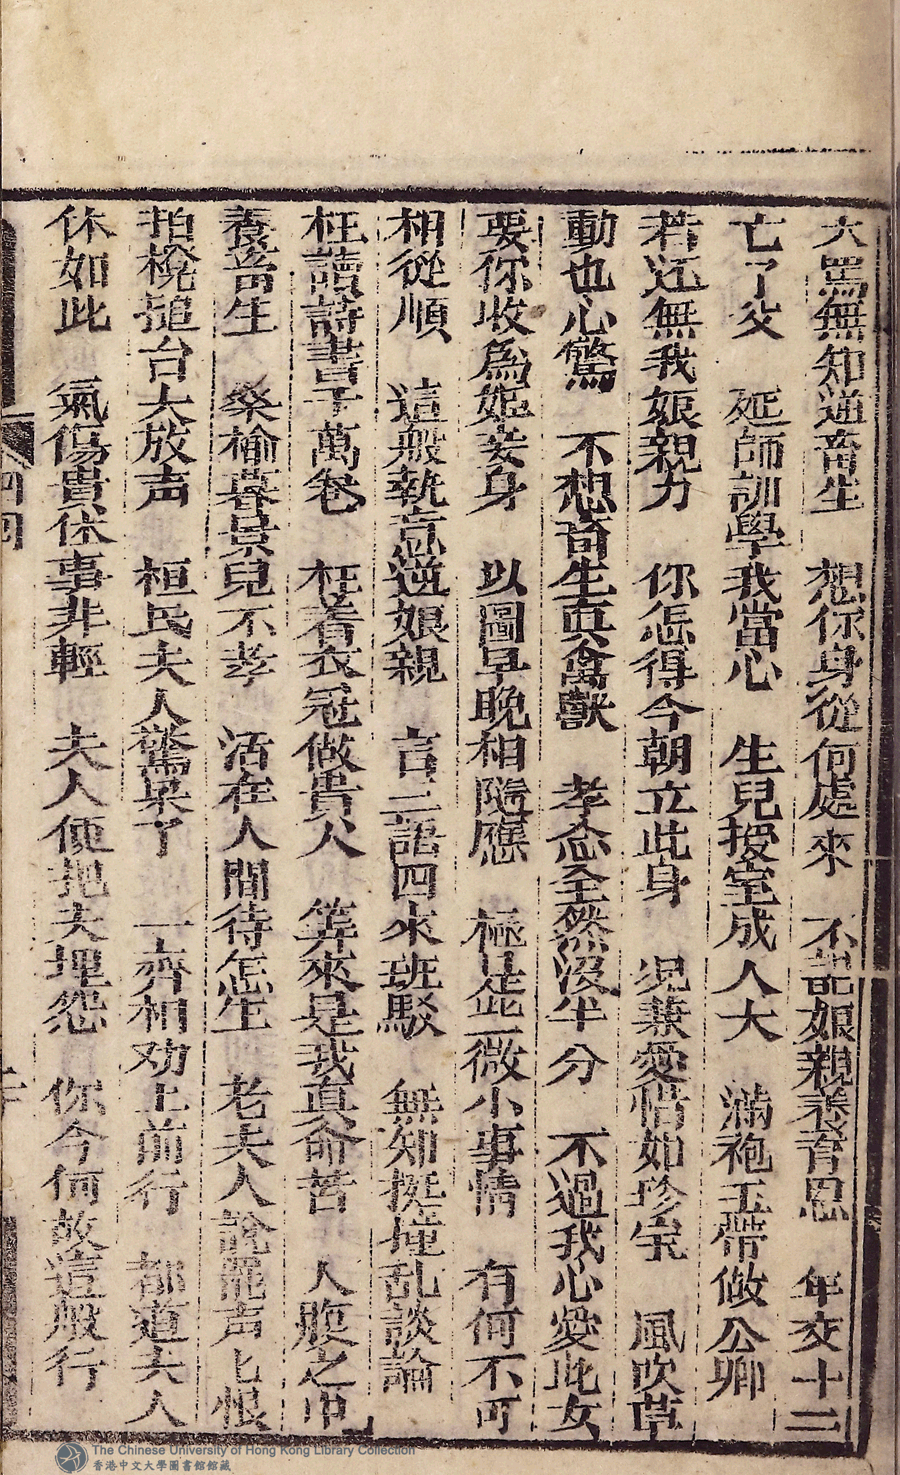 大罵無知逆畜生　想你身從何處來　不記娘親養育恩　年交十二
亡了父　延師訓學我當心　生兒授室成人大　滿袍玉帶做公卿
若还無我娘親力　你怎得今朝立此身　児兼愛惜如珍宝　風吹草
動也心驚　不想畜生真禽獸　孝念全然沒半分　不過我心愛此女
要你收為姬妾身　以圖早晚相隨應　極是些微小事情　有何不可
相從順　這般執意逆娘親　言三語四來班駁　無知挺撞乱談論
枉讀詩書千萬卷　枉着衣冠做貴人　筭來是我真命苦　人腹之中
養畜生　桑榆暮景兒不孝　活在人間待怎生　老夫人說罷声匕恨
拍櫈搥台大放声　桓氏夫人驚呆了　一齊相劝上前行　都道夫人
休如此　氣傷貴体事非輕　夫人便把夫埋怨　你今何故這般行
The Chinese University of Hong Kong Library Collection
香港中文大學圖書館館藏